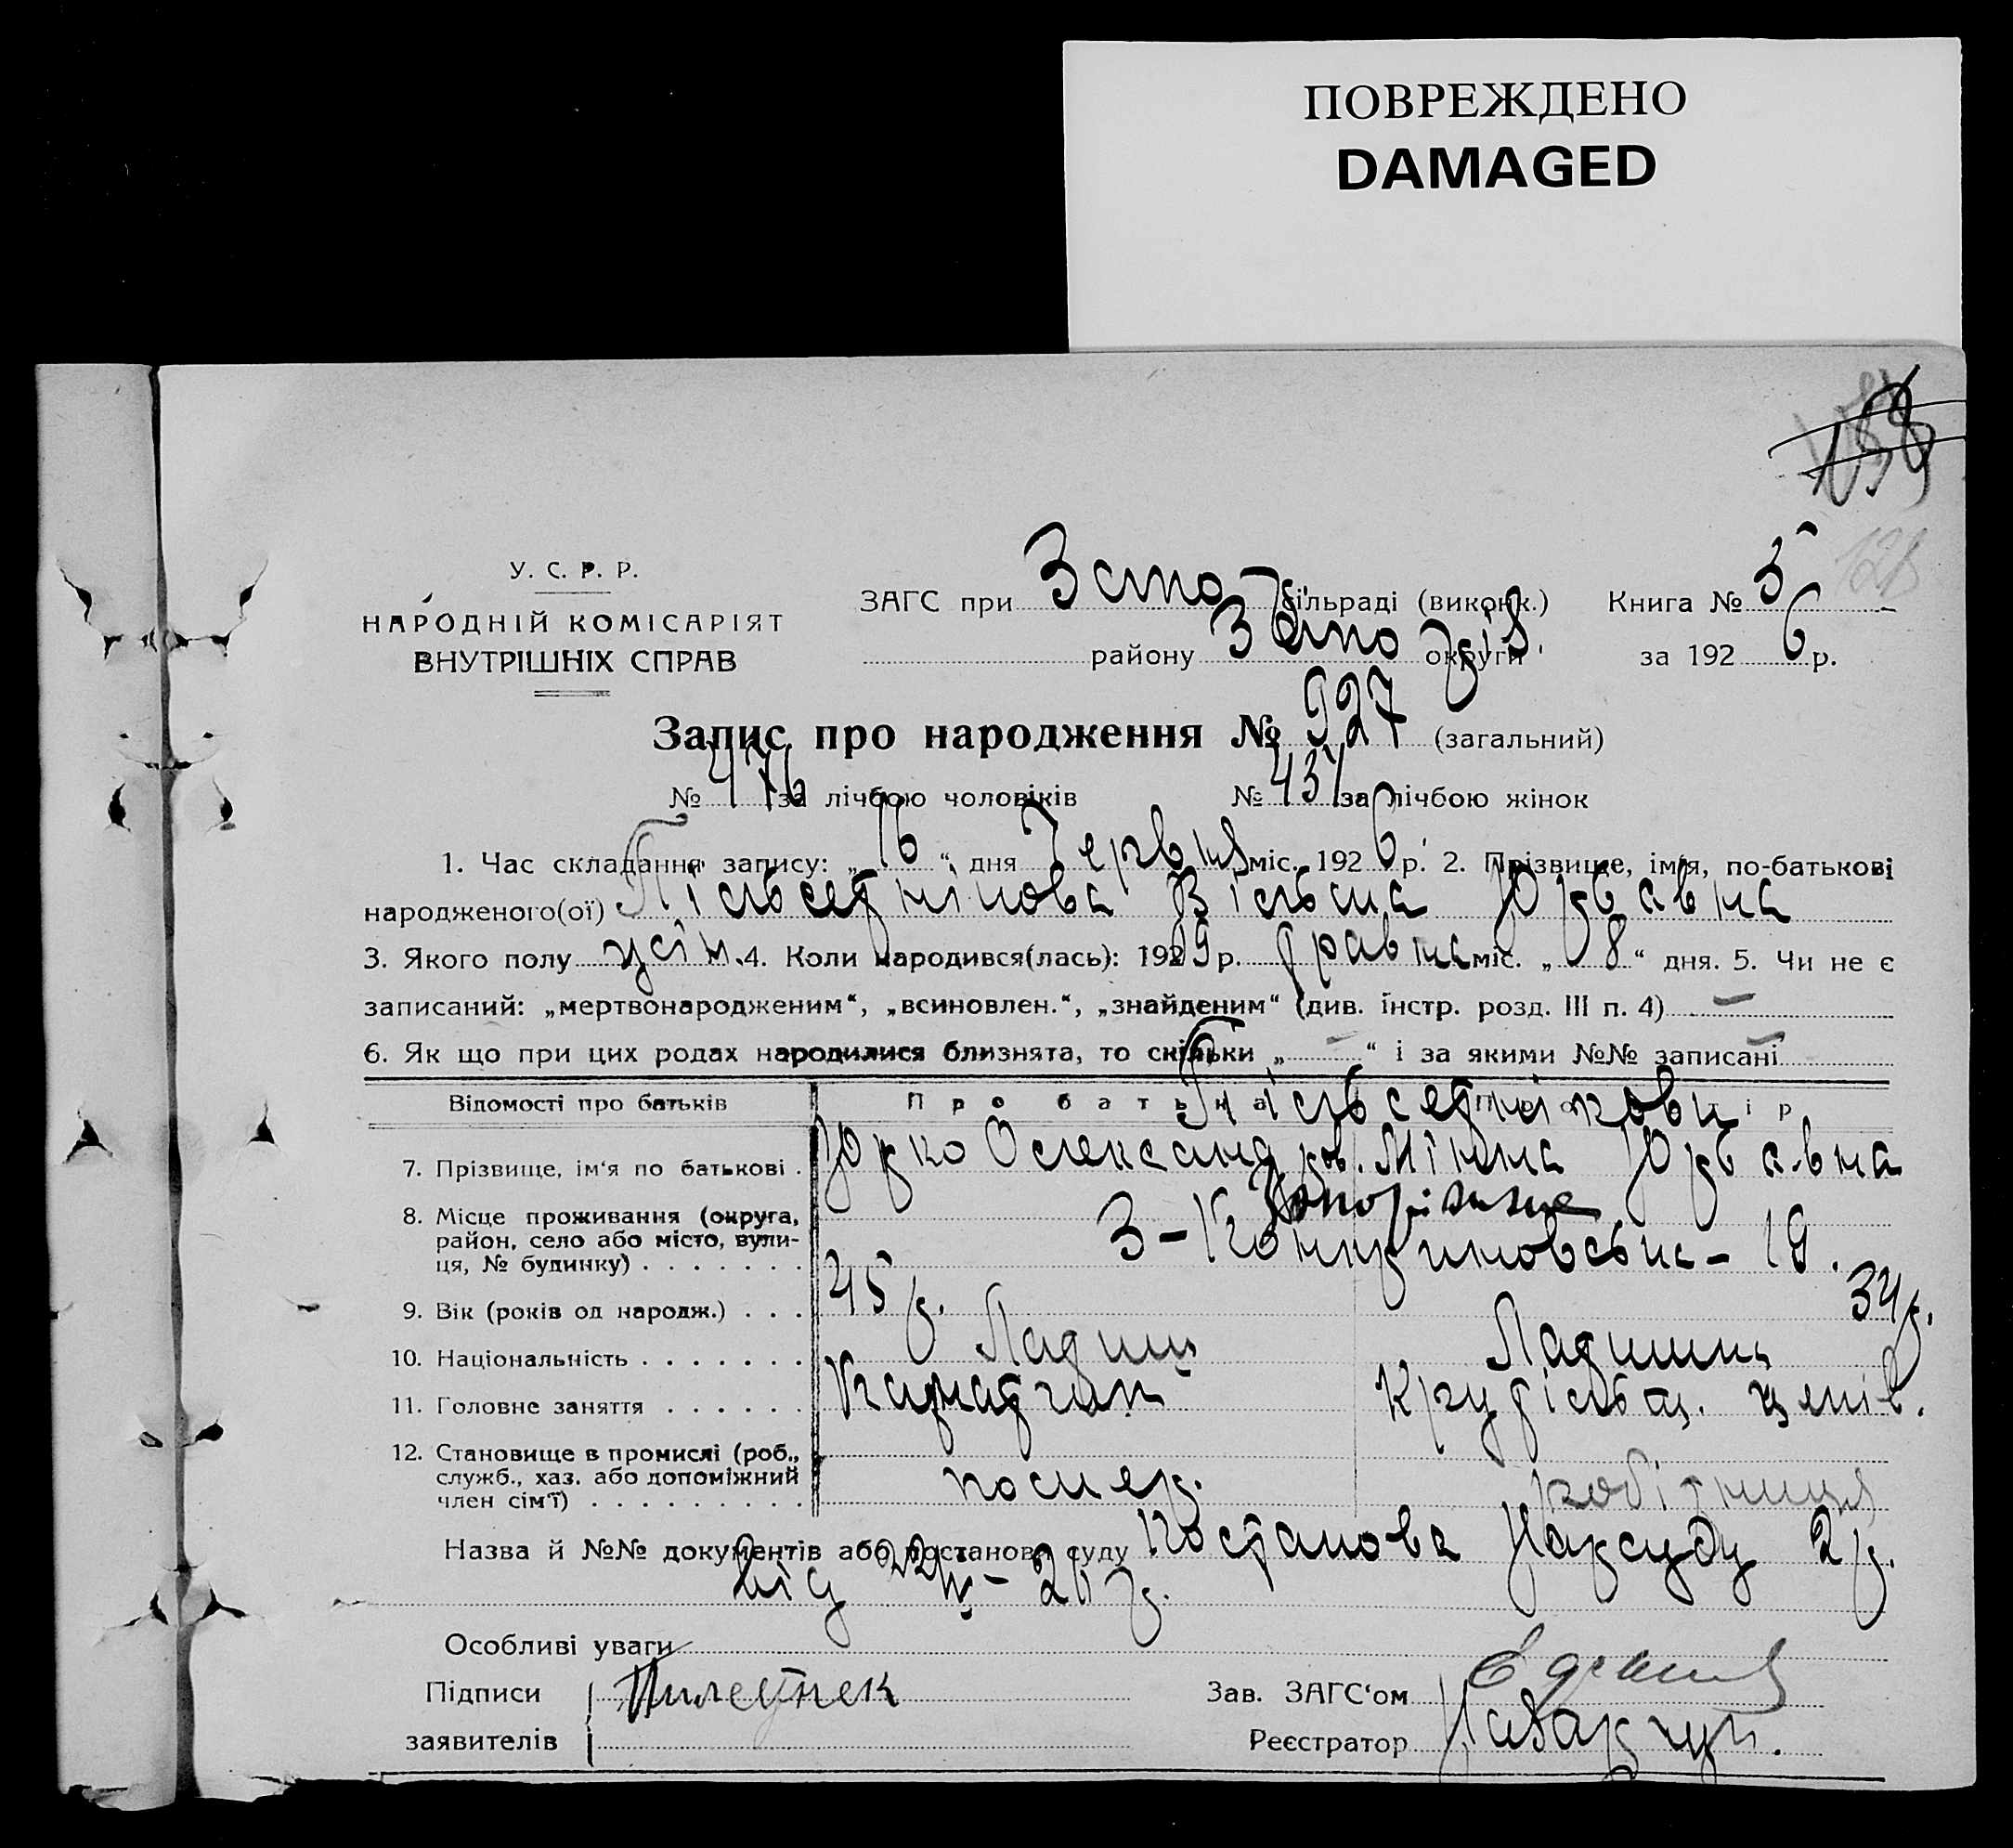 ПОВРЕЖДЕНО
DAMAGED
У. С. Р. Р.
НАРОДНІЙ КОМІСАРІЯТ
ВНУТРІШНІХ СПРАВ
ЗАГС при сільраді (виконк.) Книга № 5
району округи за 1926 р.
Запис про народження № 927 (загальний)
№ 476 за лічбою чоловіків № 451 за лічбою жінок
1. Час складання запису: „16“ дня Червня міс. 1926 р. 2. Прізвище, ім'я, по-батькові
народженого(ої) Вільма Юрьевна
3. Якого полу жін. 4. Коли народився(лась): 1919 р. травня міс. „8“ дня. 5. Чи не є
записаний: „мертвонародженим“, „всиновлен.“, „знайденим“ (див. інстр. розд. III п. 4) —
6. Як що при цих родах народилися близнята, то скільки „—“ і за якими №№ записані —
Відомості про батьків Про батька Про матір
7. Прізвище, ім'я по батькові . Юрко Олександров. Мінна Юрьевна
8. Місце проживання (округа, Запоріжже
район, село або місто, вули- 19.
ця, № будинку)
9. Вік (років од народж.) . . . 45 р. 34 р.
10. Національність Латиш Латишка
11. Головне заняття
12. Становище в промислі (роб.,
служб., хаз. або допоміжний робітниця
член сім'ї)
Назва й №№ документів або постанов суду Постанова Нарсуду 2 р.
від
Особливі уваги
Підписи Зав. ЗАГС'ом
заявителів Реєстратор